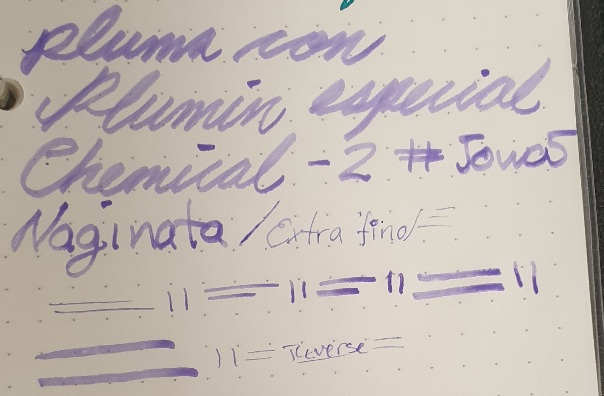 pluma con
Plumin especial
Chemical - 2 # Jowo5
Naginata / Extra fino/=
= Reverse =